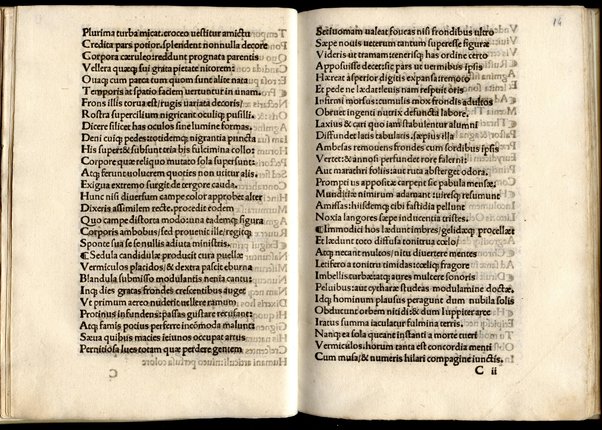 Plurima turba micat. croceo uestitur amictu
Credita pars potior. splendent nonnulla decore
Corpora cæruleo: reddunt prognata parentis
Vellera quæq; sui grata pietate nitorem:
Quacq cum parta tum quom sunt alite nata
Temporis at spatio faciem uertuntur in unam.
Frons illis torua est/rugis uariata decoris/
Rostra supercilium nigricant oculusq; pusilli.
Dicere filice has oculos sine lumine formas.
Deni cuiq; pedes: totidemq; nigrantia puncta
His super: & subsunt teria bis fulcimina collo:
Corpore quæ reliquo mutato sola supersunt:
Atq; ferunt uolucrem quoties non utitur alis.
Exigua extremo surgit de tergore cauda.
Hunc nisi diuersum campe color approbet alter
Dixeris assimilem recte. procedit eodem
Quo campe distorta modo: una tademq; figura
Corporis ambobus/sed prouenit ille/regitq;
Sponte sua se se nullis adiuta ministris.
¶Sedula candidulæ producit cura puellæ
Vermiculos placidos/& dextra pascit eburna
Blandula submisso modulantis nenia cantu:
Inq; dies gratas frondes crescentibus auget
Vt primum aereo nuderit uellere ramum
Protinus infundens: passas gustare recusant:
Atq; famis potius perferre incōmoda malunt:
Sæua quibus macies ieiunos occupat artus
Pernitiosa lues totam quæ perdere gentem
C
14
Sei suomam ualeat foueas nisi frondibus ultro
Sæpe nouis ueterum cantum superesse figuræ
Videris at tramam teneris q; has ordine certo
Apposuisse decet: sic pars ut uermibus ipsis
Hæreat asperior digitis expansa remoto
Et pede ne lædat ileunis nam respuit oris
Infirmi morsus: cumulis mox frondis adultos
Obruet ingenti nutrix defuncta labore.
Laxius & cari quo iam stabulentur alumni
Diffundet lætis tabulatis. sæpius illa
Ambesas remouens frondes cum sordibus ipsis
Verret: & annosi perfundet rore falerni:
Aut marathri foliis: aut ruta absterget odora.
Prompti us appositæ carpent sic pabula mensæ.
Munditiæ nimirum adamant tuicursq; resumunt
Amissas: hiisdemq; cibi fastidia pellunt
Noxia langores sæpe inducentia tristes.
¶Immodici hos lædunt imbres/gelidæq; procellæ
Et lædunt toto diffusa tonitrua cœlo/
Atq; necant muleos/nitu diuertere mentes
Letifero a tonitru timidas: cœliq; fragore
Imbellis turbatq; aures mulcere sonoris
Peluibus: aut cytharæ studeas modulamine doctæ.
Idq; hominum plausus peragunt dum nubila solis
Obducunt orbem nitidi: & dum Iuppiter arce
Iratus summa iaculatur fulmina terris.
Nanq; ea sola queant instanti a morte tueri
Vermiculos. horum tanta est concordia menti
Cum musa/& numeris hilari compagine iunctis.
C ii